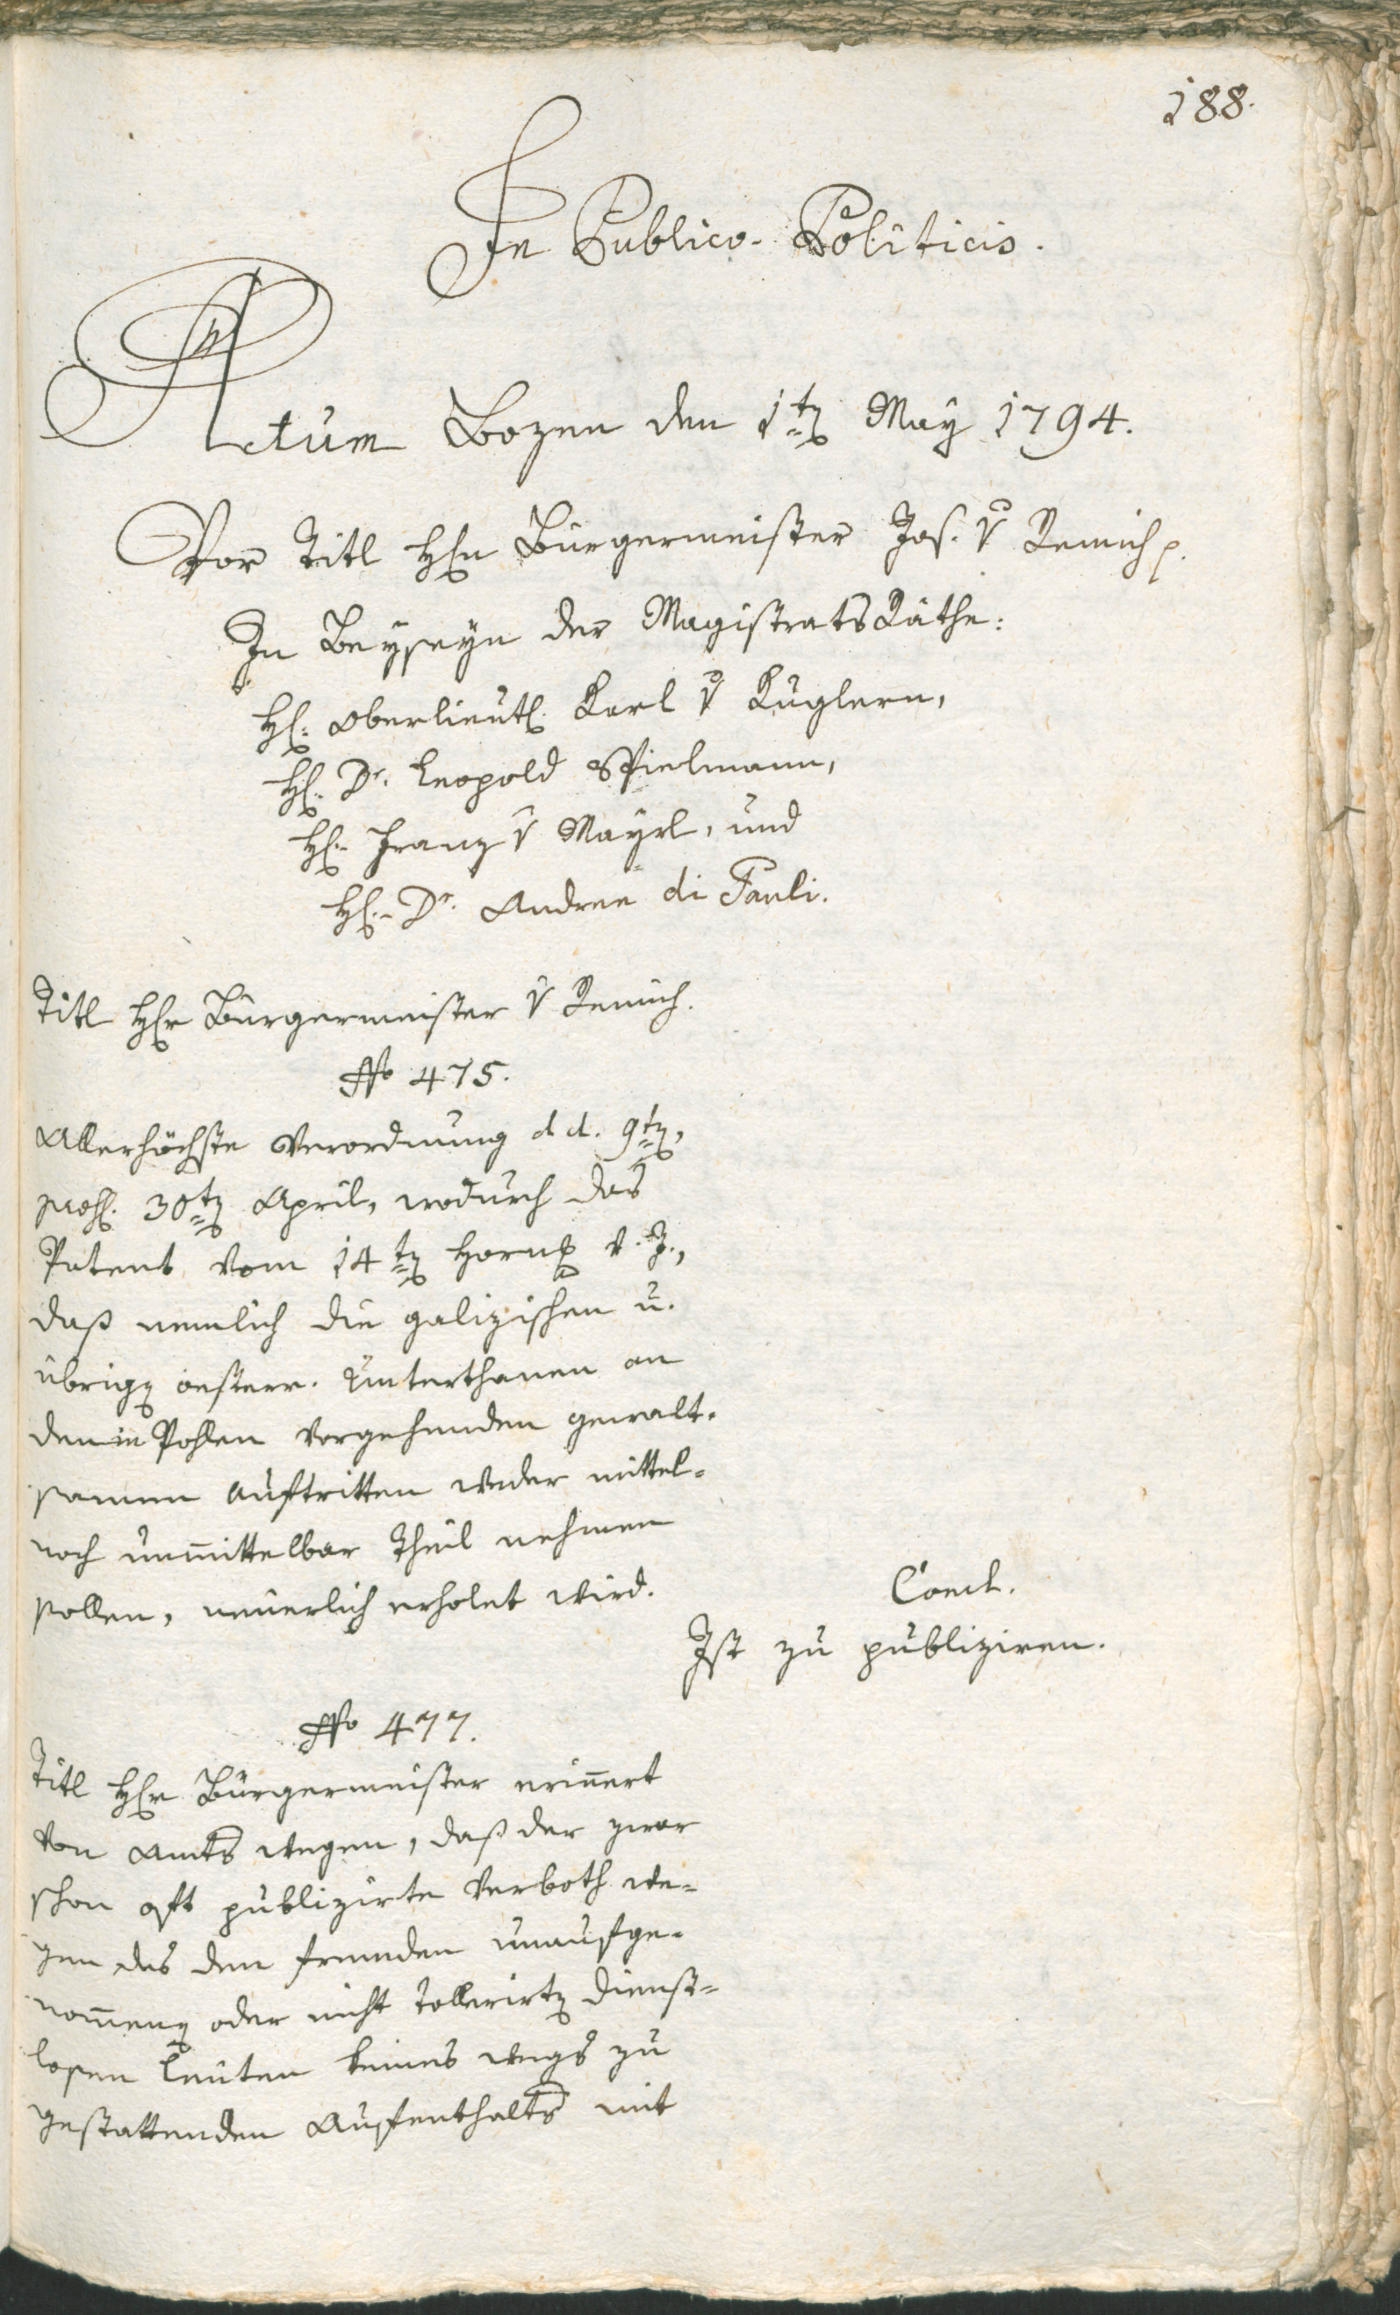 188.
In Publico-Politicis.
Actum Bozen den 1ten May 1794.
Vor Titl Hrn Bürgermeister Jos. v Remich p.
In Beyseyn der Magistrats Räthe:
Hr. Oberlieut. Karl v Kuglern,
Hr. Dr. Leopold Spielmann,
Hr. Franz v Mayrl, und
Hr. Dr. Andree di Pauli.
Titl Hr Bürgermeister v Remich.
No 475.
Allerhöchste Verordnung d d. 9ten,
praes. 30ten April, wodurch das
Patent vom 14ten Horng v. J.,
daß nemlich die galizischen u.
übrigen oesterr. Unterthanen an
den in Pohlen vorgehenden gewalt-
samen Auftritten weder mittel-
noch unmittelbar Theil nehmen
sollen, neuerlich erholet wird.
Concl.
Ist zu publiziren.
No 477.
Titl Hr Bürgermeister erinnert
von Amts wegen, daß der zwar
schon oft publizirte Verboth we-
gen des den fremden unaufge-
nommenen oder nicht tollerirten dienst-
losen Leuten keines wegs zu
gestattenden Aufenthalts mit